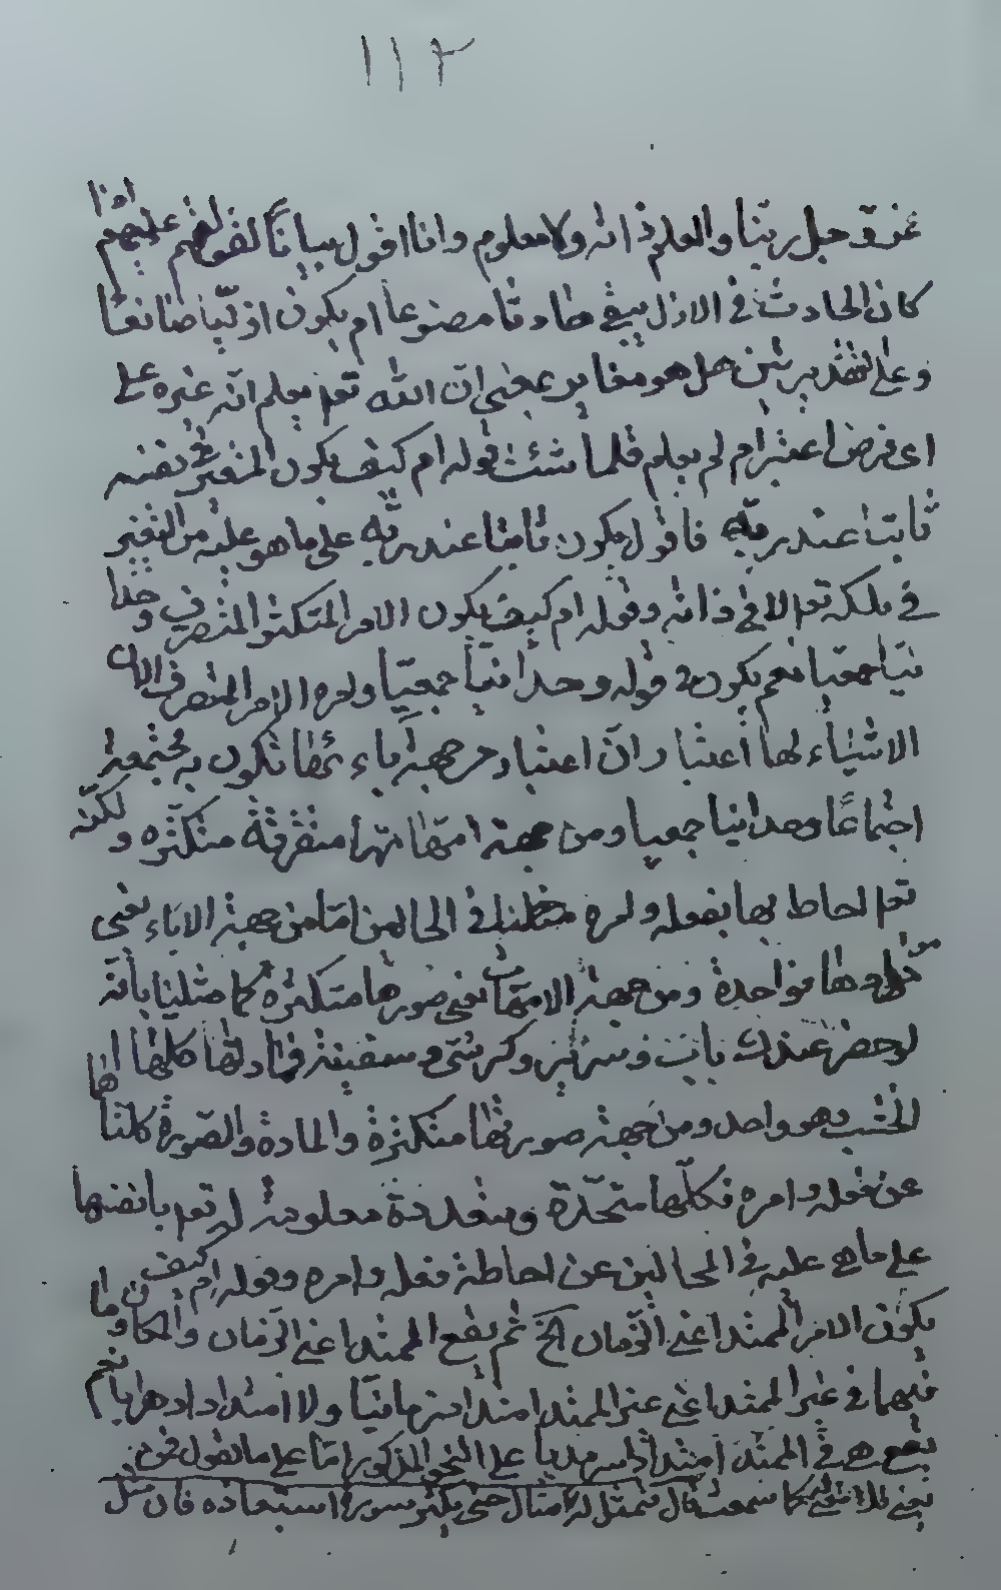 ١١٢
عز وجل ربنا والعلم ذاته ولا معلوم وانا اقول بيانا لقولهم عليهم اذا
كان الحادث في الازل يبقى حادثا مصنوعا ام يكون ازليا صانعا
وعلى التقديرين هل هو مغاير بمعنى ان الله تعم يعلم انه غيره على
اى فرض اعتبر ام لم يعلم قلما شئت قوله ام كيف يكون المتغير في نفسه
ثابتا عند ربه فاقول يكون ثابتا عند ربه على ما هو عليه من التغير
في ملكه تعم لا في ذاته وقوله ام كيف يكون الامر المتكثر المتفرق وحدا
نيا جمعيا نعم يكون قوله وحدانيا جمعيا الامر المتفرق لان
الاشياء لها اعتباران اعتبار من جهة تكون به مجتمعة
اجتماعا وحدانيا جمعيا ومن جهة امهاتها متفرقة متكثره ولكنه
تعم احاط بها بفعله وامره في الحالين اما من جهة الاباء يعنى
موادها فواحدة ومن جهة الامهات يعنى صورها متكثره كما مثلنا بانه
لو حضر عندك باب وسرير وكرسى وسفينة فمادتها كلها
الخشب وهو واحد ومن جهة صورتها متكثرة والمادة والصورة كلتاهما
عن فعله وامره فكلها متحدة ومتعددة معلومة له تعم بانفسها
على ما هى عليه في الحالين عن احاطة فعله وامره وقوله ام كيف
يكون الامر الممتد اعنى الزمان الخ ثم يقع الممتد اعنى الزمان والمكان وما
فيهما في غير الممتد اعنى غير الممتد امتدادا زمانيا ولا امتدادا دهريا نعم
يقع هى في الممتد امتدادا سرمديا على النحو المذكور اما على ما نقول فهو
كما سمعت قال فنمثل له مثال حتى يكسر سورة استبعاده فان مثل